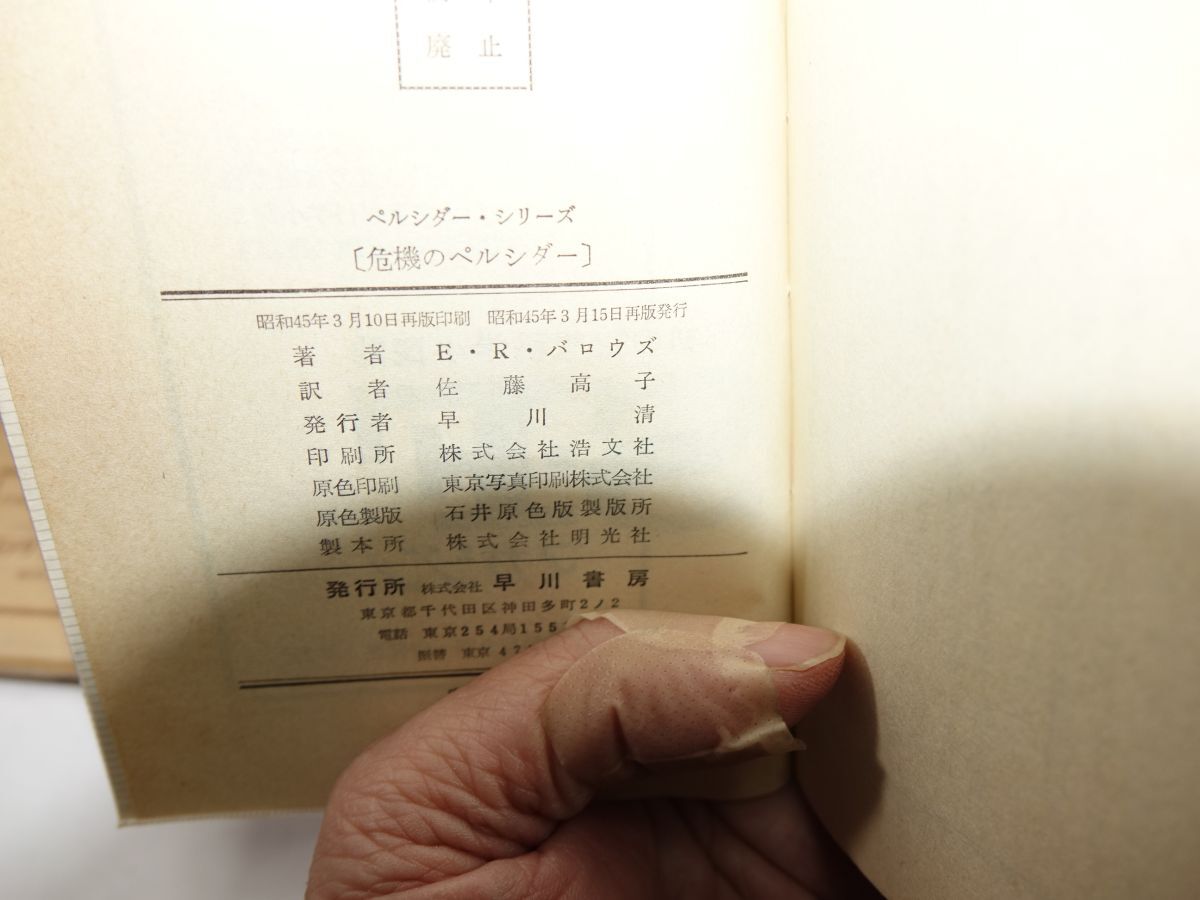 廃止
ペルシダー・シリーズ
〔危機のペルシダー〕
昭和45年3月10日再版印刷 昭和45年3月15日再版発行
著者 E・R・バロウズ
訳者 佐藤高子
発行者 早川清
印刷所 株式会社浩文社
原色印刷 東京写真印刷株式会社
原色製版 石井原色版製版所
製本所 株式会社明光社
発行所 株式会社 早川書房
東京都千代田区神田多町2ノ2
電話 東京254局155
振替 東京 47